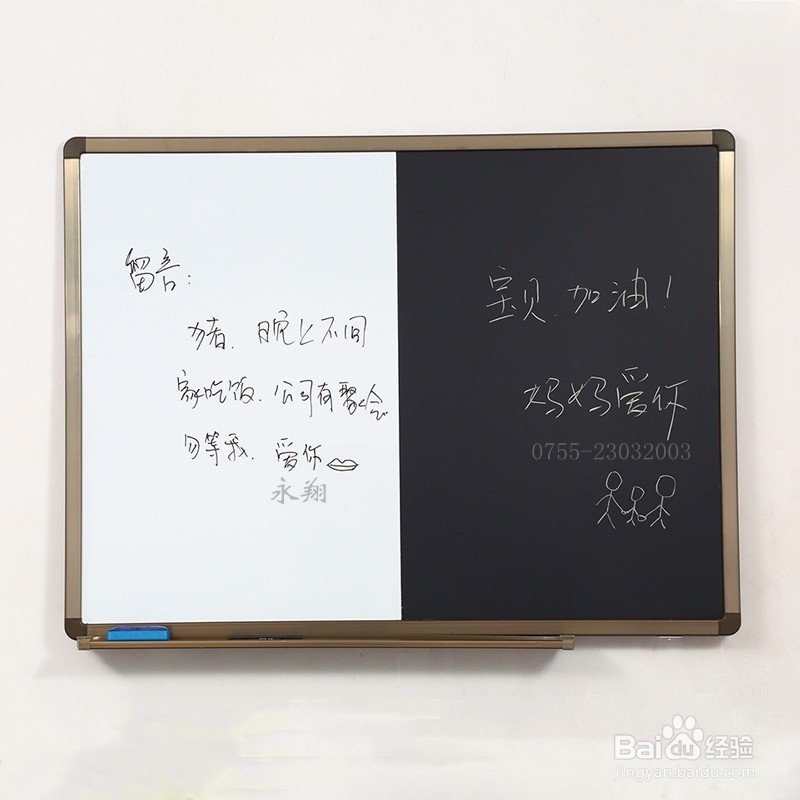 留言:
猪. 晚上不回
家吃饭. 公司有聚会
勿等我. 爱你
永翔
宝贝. 加油!
妈妈爱你
0755-23032003
Baidu经验
jingyan.baidu.com